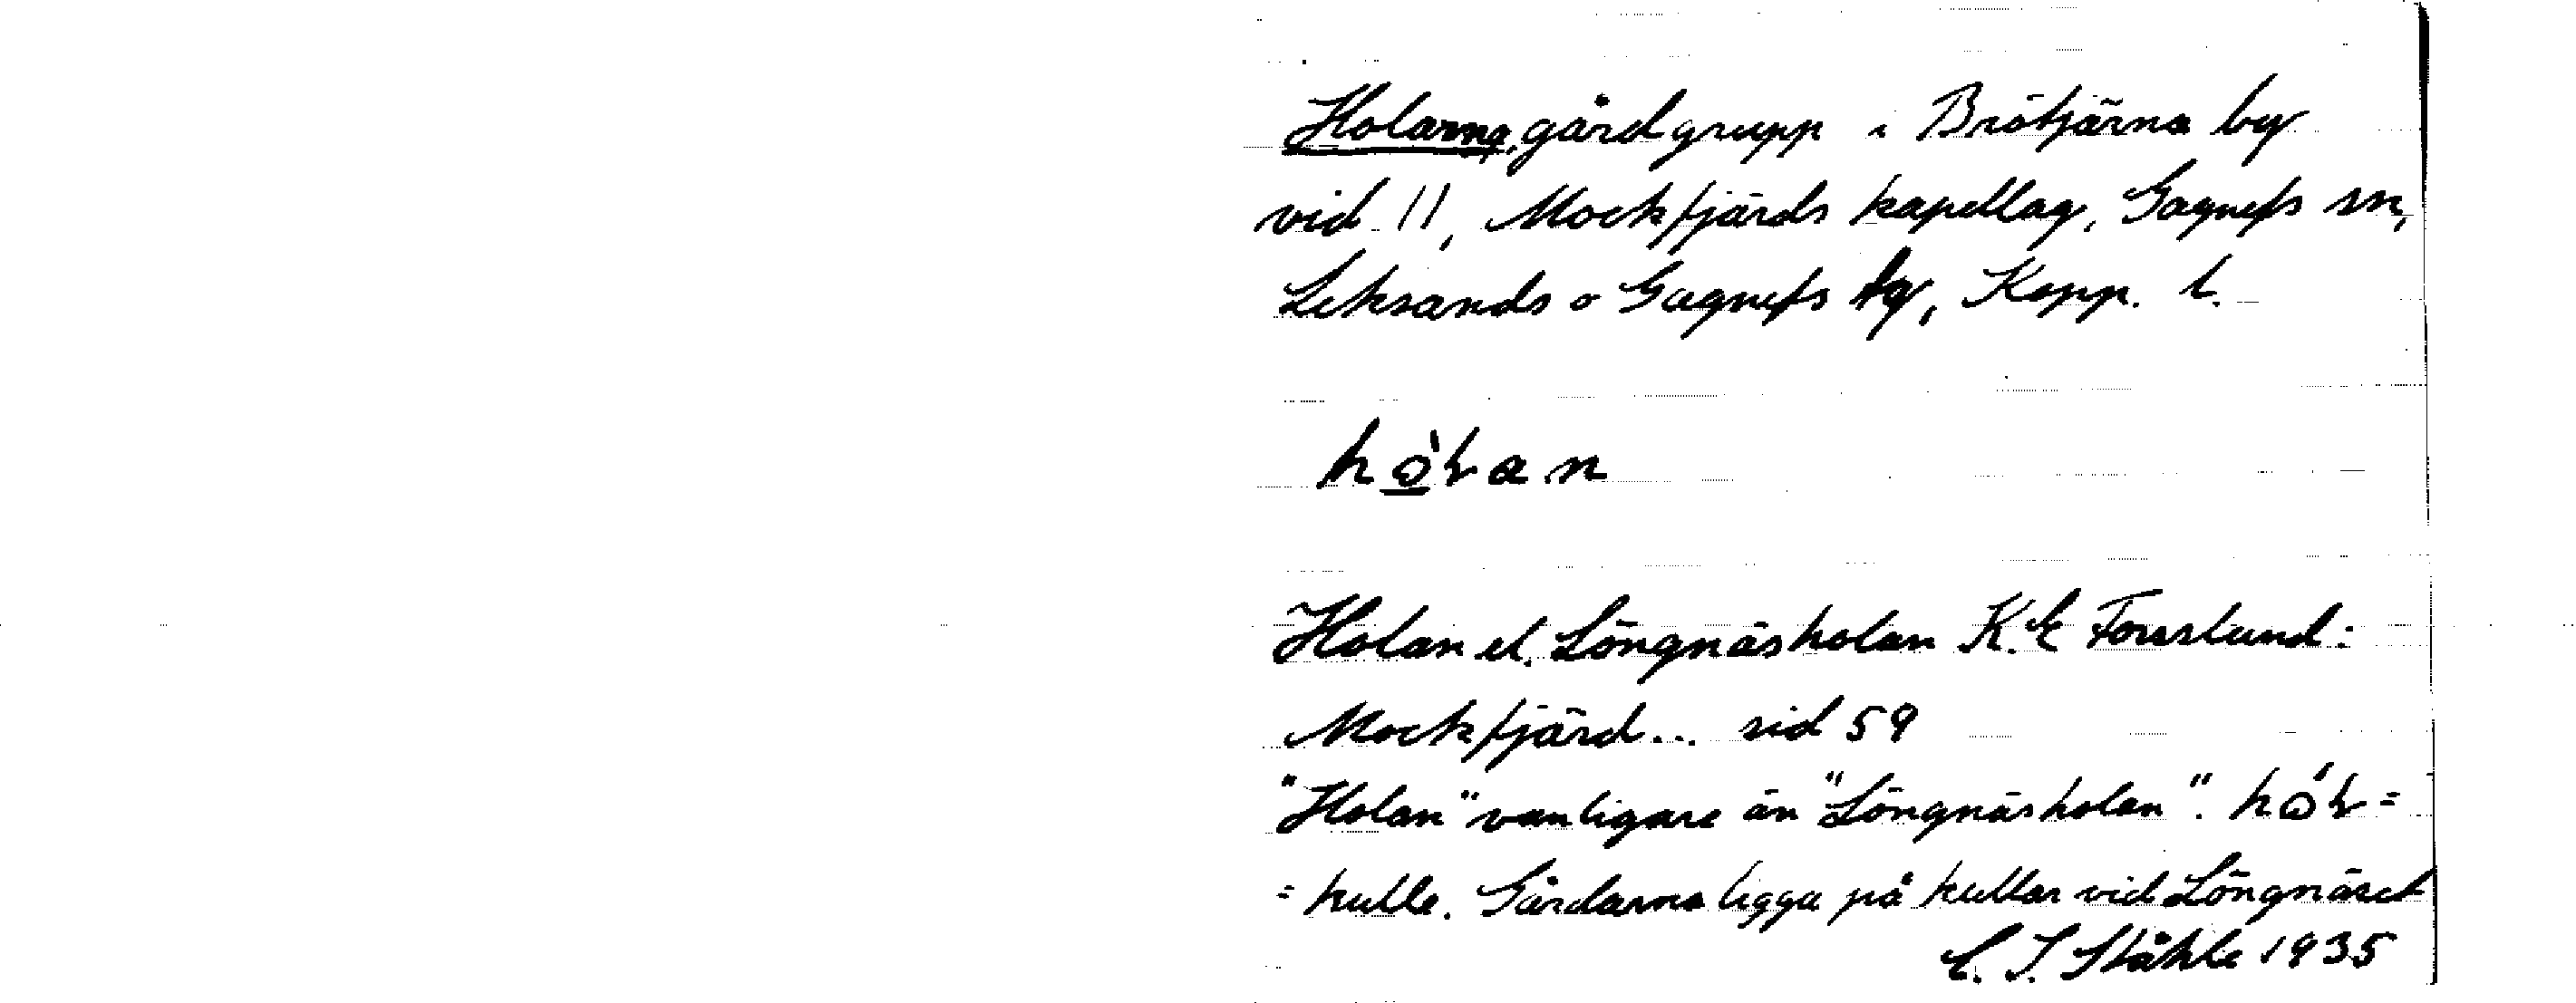 Holarna, gårdgrupp i Brötjärna by
vid 11, Mockfjärds kapellag, Gagnefs sn,
Leksands o Gagnefs tg, Kopp. l.
hòɫan
Holan el. Löngnäsholan K.E Forslund:
Mockfjärd... sid 59
"Holan" vanligare än "Löngnäsholan". hóɫ=
= kulle. Gårdarna ligga på kullar vid Löngnäset
C. I. Ståhle 1935